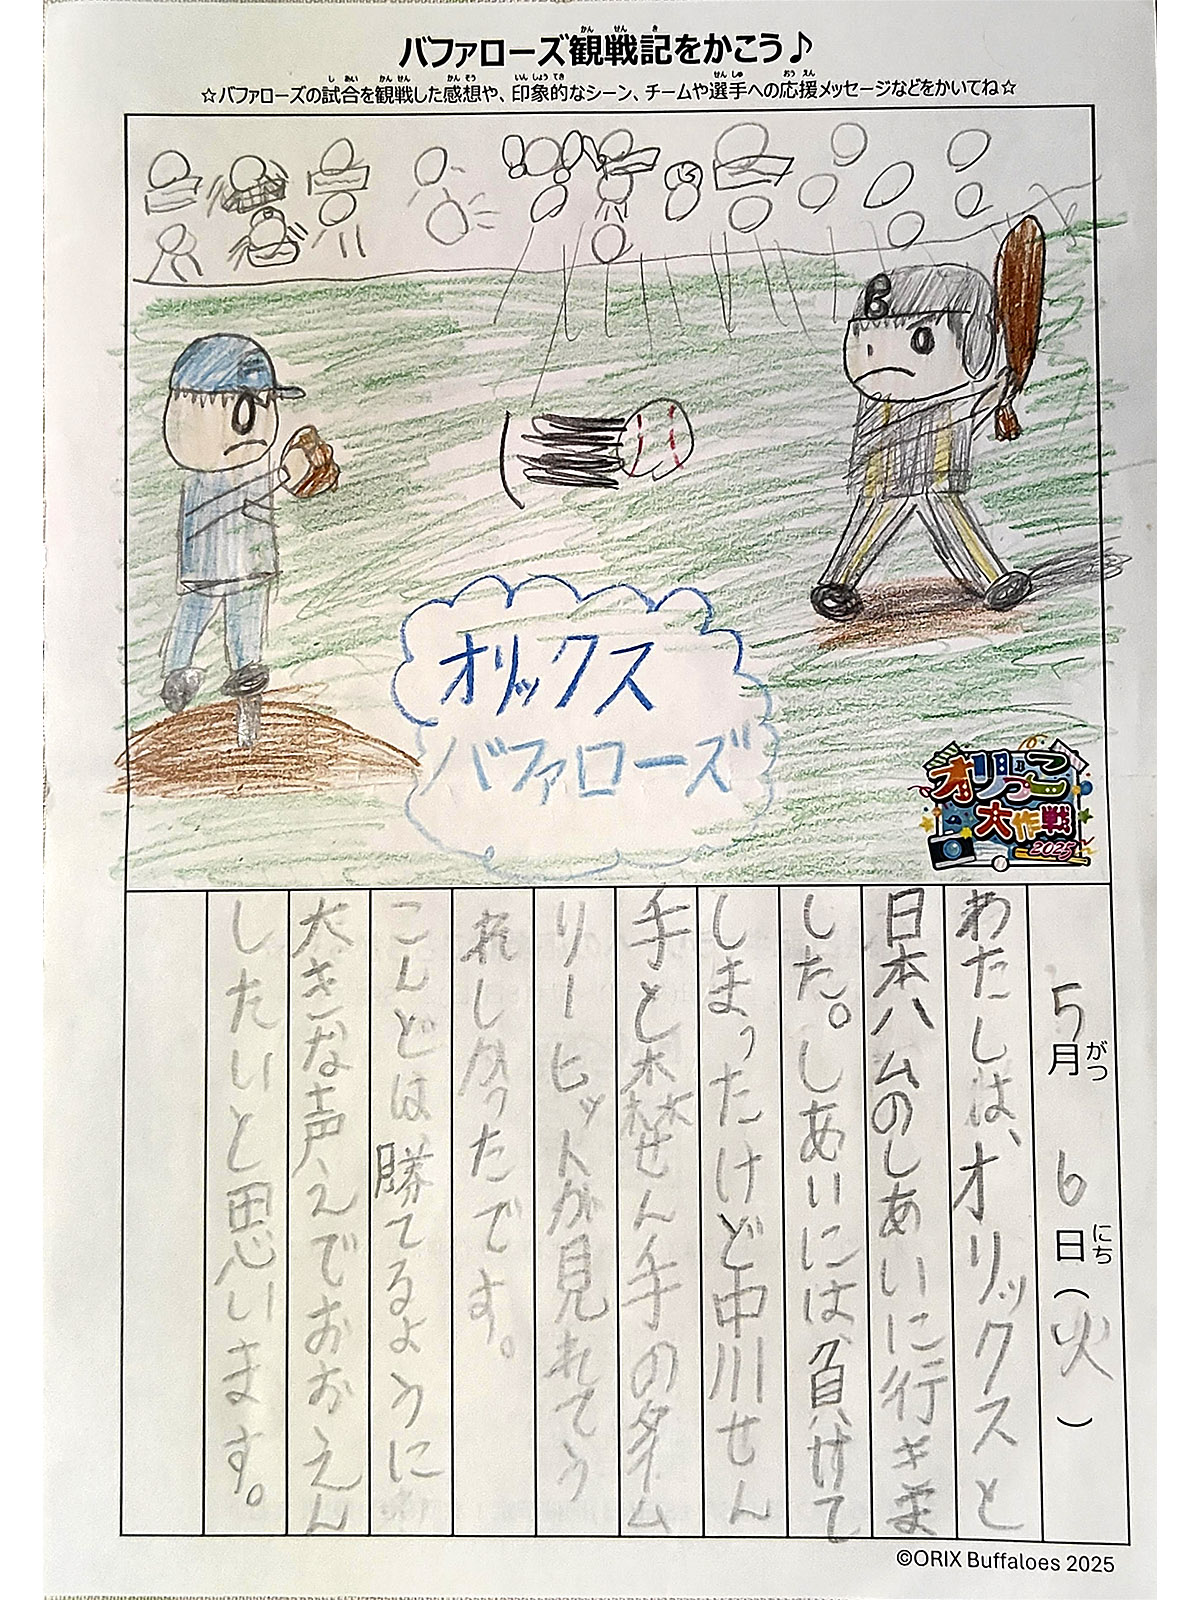 バファローズ観戦記をかこう♪
☆バファローズの試合を観戦した感想や、印象的なシーン、チームや選手への応援メッセージなどをかいてね☆
B
オリックス
バファローズ
オリっこ
大作戦
2025
5月6日(火)
わたしは、オリックスと
日本ハムのしあいに行きま
した。しあいには、負けて
しまったけど中川せん
手と森せん手のタイム
リーヒットが見れてう
れしかったです。
こんどは勝てるように
大きな声えでおおえん
したいと思います。
©ORIX Buffaloes 2025